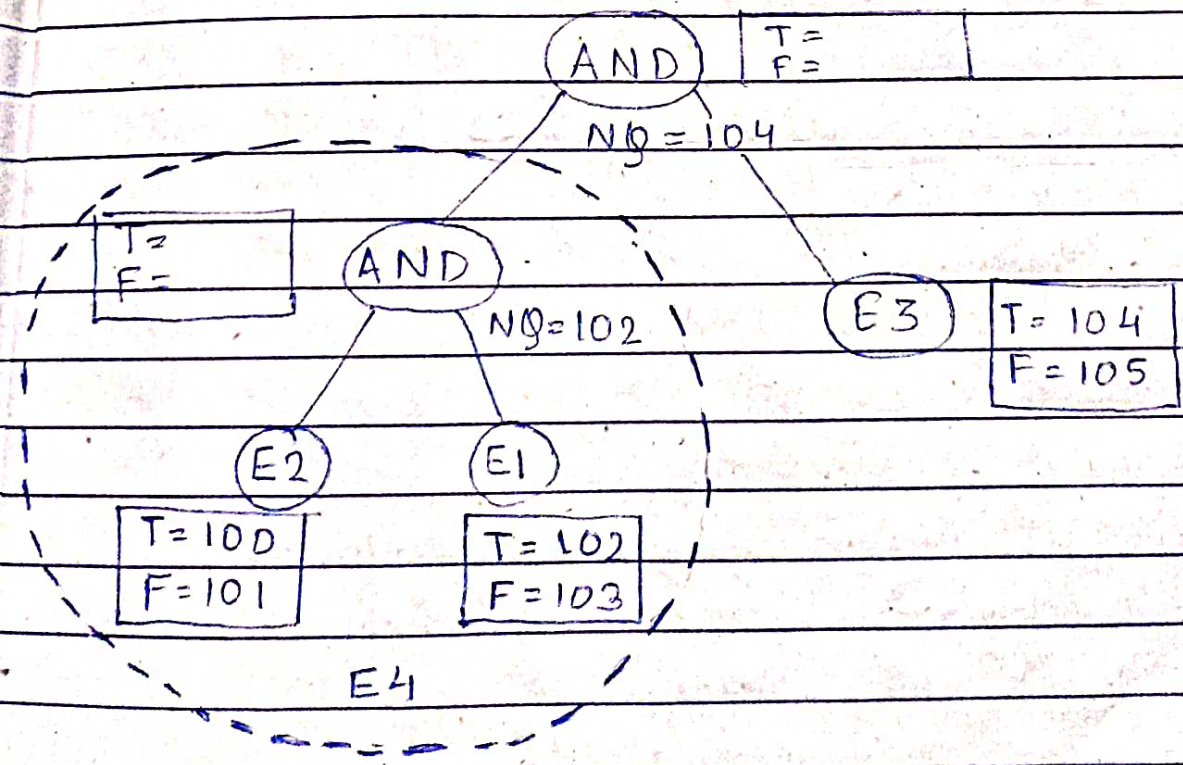 AND
T =
F =
NQ = 104
T =
F =
AND
NQ = 102
E3
T = 104
F = 105
E2
E1
T = 100
F = 101
T = 102
F = 103
E4